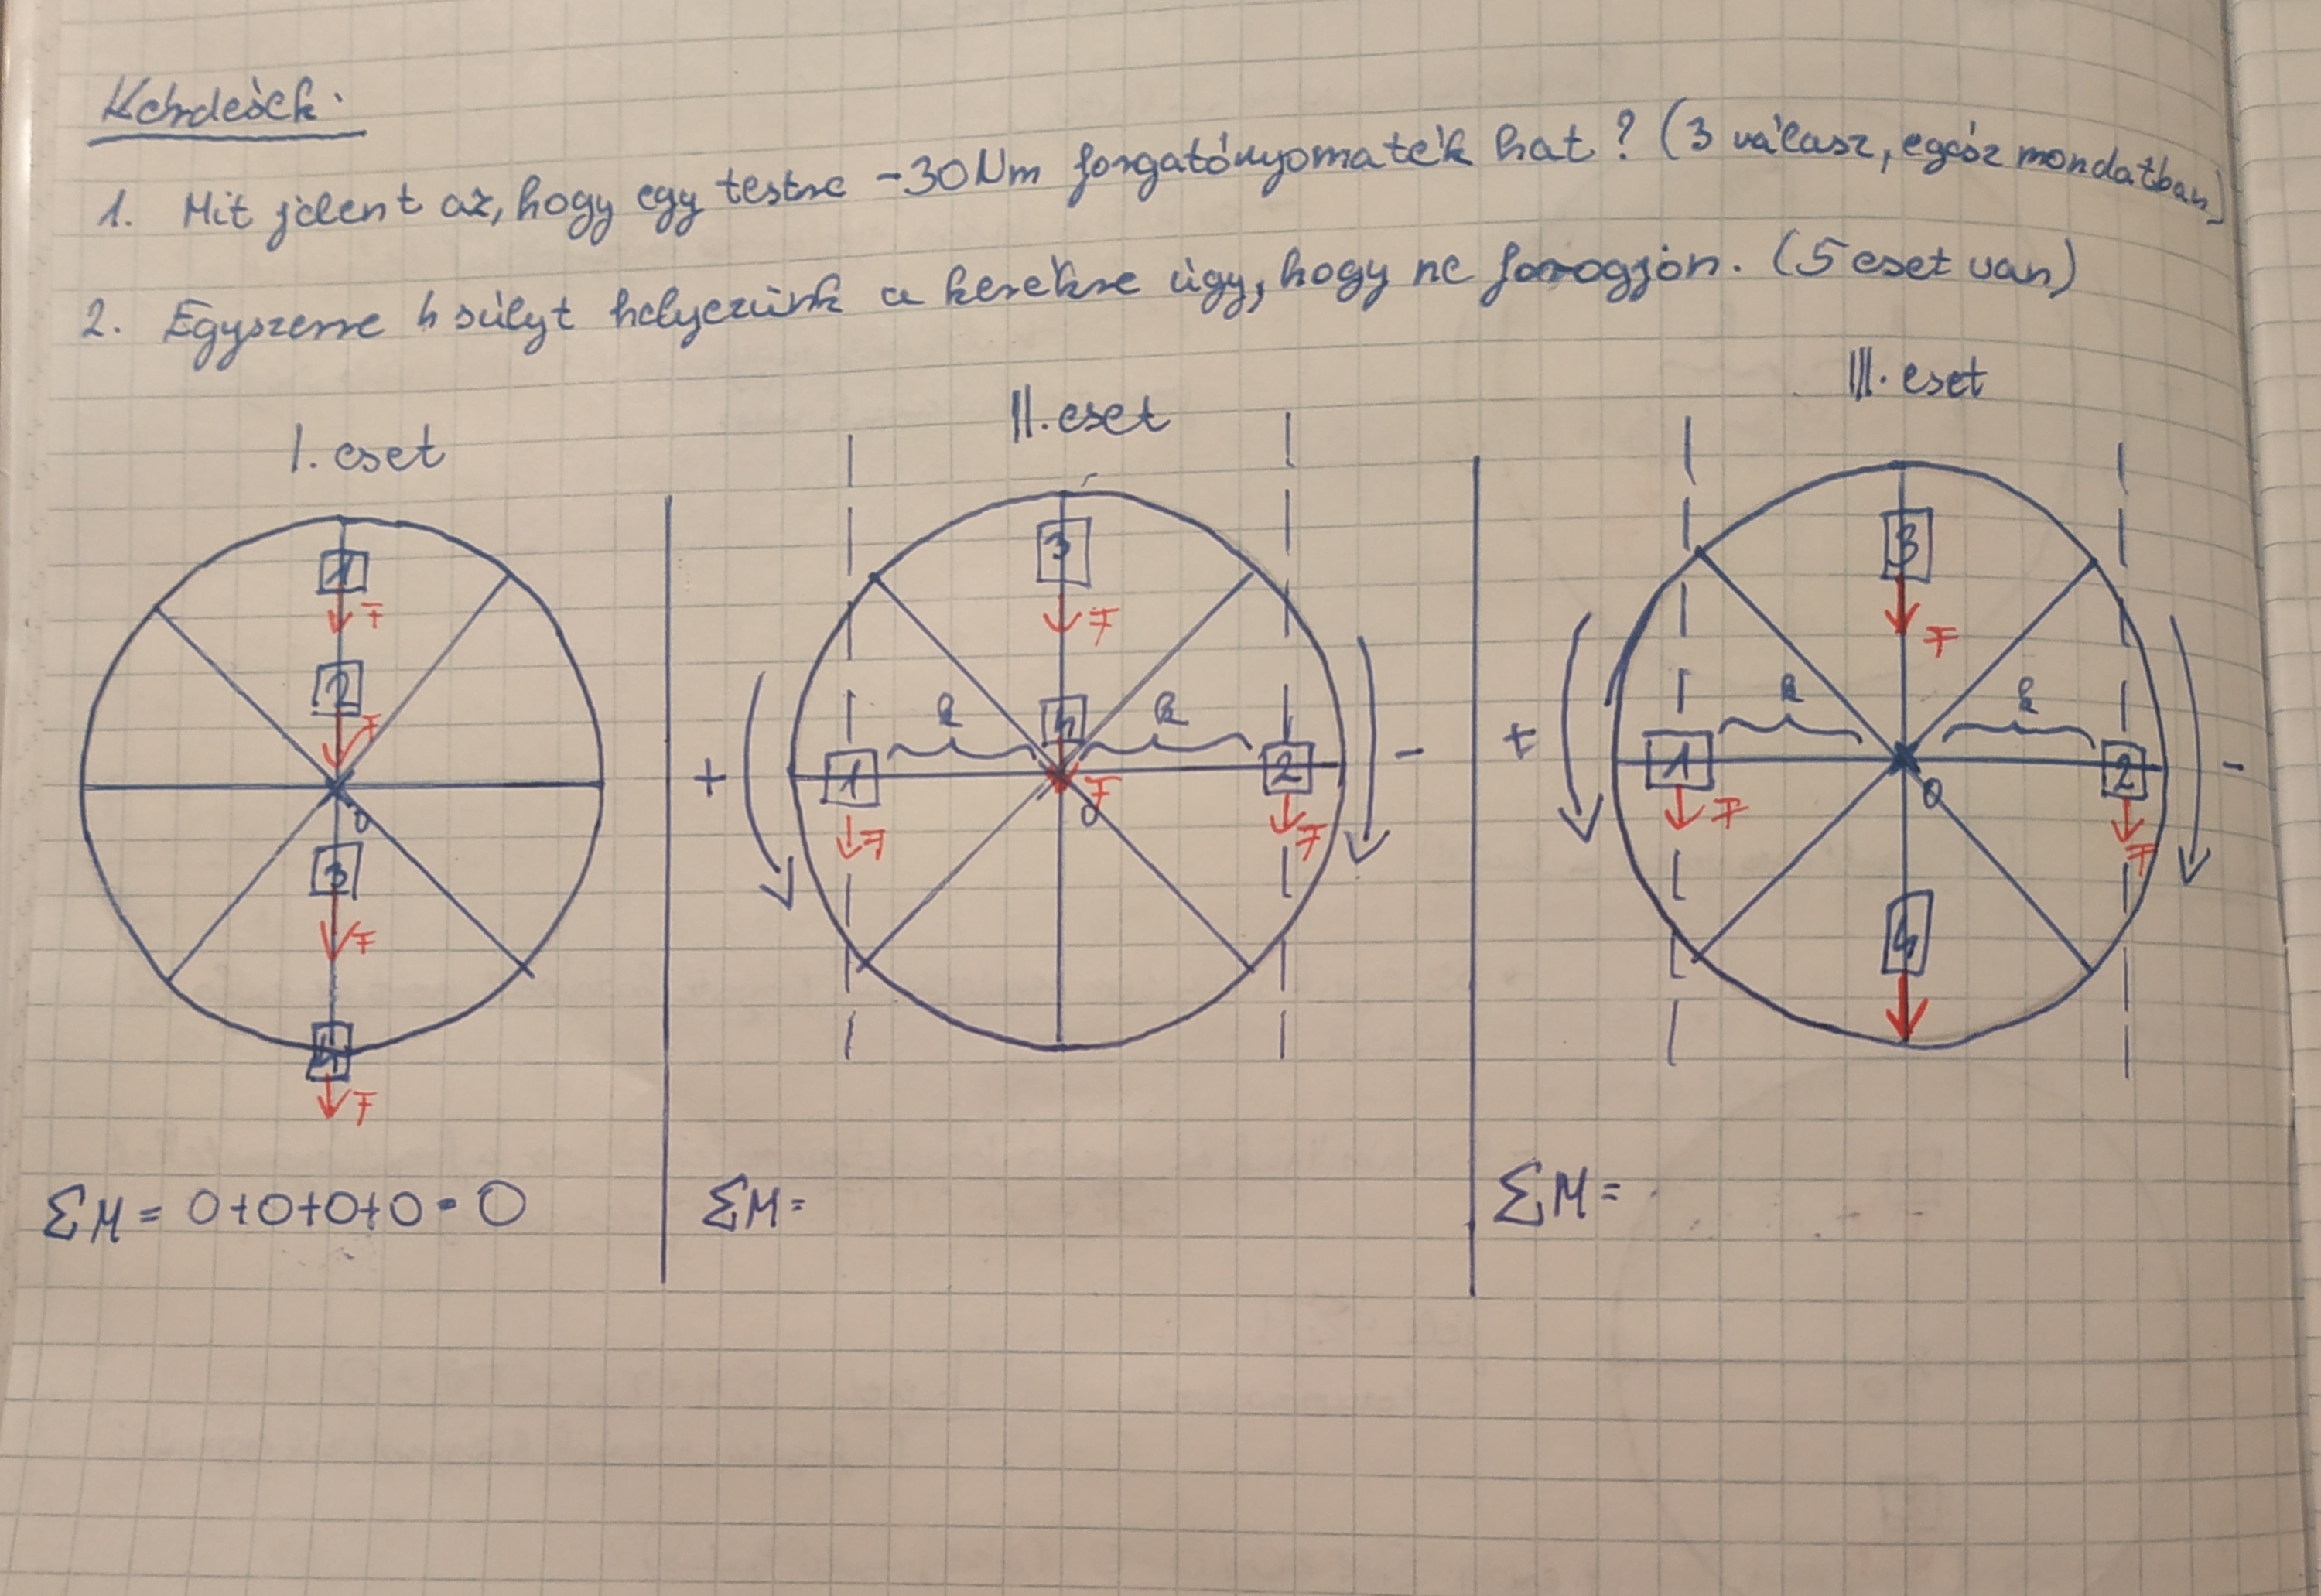 Kérdések:
1. Mit jelent az, hogy egy testre -30Nm forgatónyomaték hat? (3 válasz, egész mondatban)
2. Egyszerre 4 súlyt helyezünk a kerékre úgy, hogy ne forogjon. (5 eset van)
I. eset
II. eset
III. eset
1
F
2
F
0
3
F
4
F
ΣM = 0+0+0+0 = 0
3
F
k
4
k
+
1
2
-
F
0
F
F
ΣM =
3
F
k
k
+
1
0
2
-
F
F
4
ΣM =